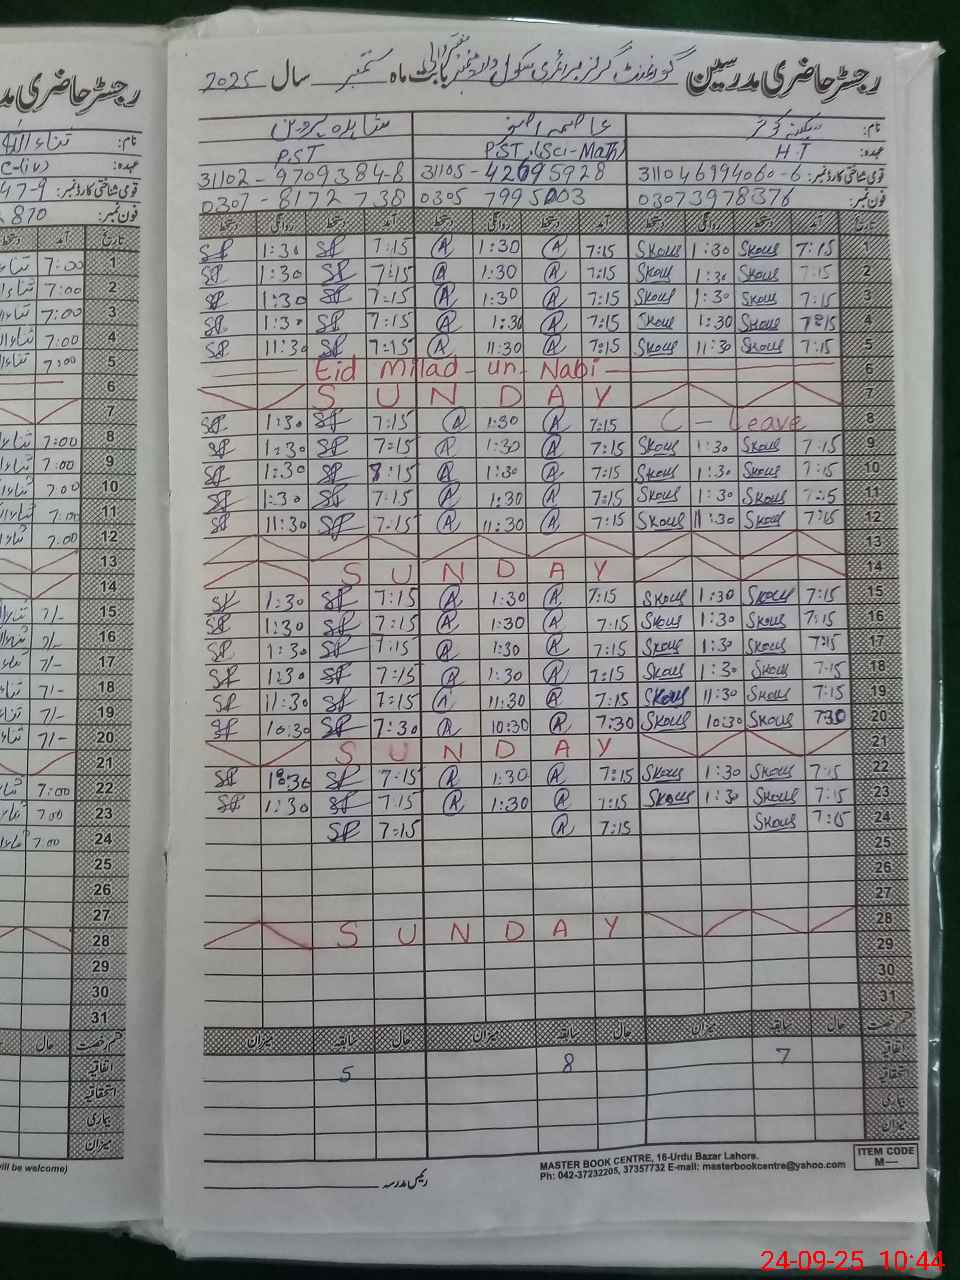 رجسٹر حاضری مدرسین گورنمنٹ گرلز پرائمری سکول بابت ماہ ستمبر سال 2025
نام: سکینہ کوثر عاصمہ اصغر شاہدہ پروین
عہدہ: H T P.S.T.(Sci-Math) P.S.T
قومی شناختی کارڈ نمبر: 311046994060-6 31105-42695928 31102-9709384-8
فون نمبر: 03073978376 0305 7995003 0307-8172738
تاریخ آمد دستخط روانگی دستخط آمد دستخط روانگی دستخط آمد دستخط روانگی دستخط
1 7:15 Skous 1:30 Skous 7:15 A 1:30 A 7:15 SP 1:30 SP
2 7:15 Skous 1:30 Skous 7:15 A 1:30 A 7:15 SP 1:30 SP
3 7:15 Skous 1:30 Skous 7:15 A 1:30 A 7:15 SP 1:30 SP
4 7:15 Skous 1:30 Skous 7:15 A 1:30 A 7:15 SP 1:30 SP
5 7:15 Skous 11:30 Skous 7:15 A 11:30 A 7:15 SP 11:30 SP
6 Eid Milad-un-Nabi
7 SUNDAY
8 C-Leave 7:15 A 1:30 A 7:15 SP 1:30 SP
9 7:15 Skous 1:30 Skous 7:15 A 1:30 A 7:15 SP 1:30 SP
10 7:15 Skous 1:30 Skous 7:15 A 1:30 A 8:15 SP 1:30 SP
11 7:15 Skous 1:30 Skous 7:15 A 1:30 A 7:15 SP 1:30 SP
12 7:15 Skous 11:30 Skous 7:15 A 11:30 A 7:15 SP 11:30 SP
13
14 SUNDAY
15 7:15 Skous 1:30 Skous 7:15 A 1:30 A 7:15 SP 1:30 SP
16 7:15 Skous 1:30 Skous 7:15 A 1:30 A 7:15 SP 1:30 SP
17 7:15 Skous 1:30 Skous 7:15 A 1:30 A 7:15 SP 1:30 SP
18 7:15 Skous 1:30 Skous 7:15 A 1:30 A 7:15 SP 1:30 SP
19 7:15 Skous 11:30 Skous 7:15 A 11:30 A 7:15 SP 11:30 SP
20 7:30 Skous 10:30 Skous 7:30 A 10:30 A 7:30 SP 10:30 SP
21 SUNDAY
22 7:15 Skous 1:30 Skous 7:15 A 1:30 A 7:15 SP 1:30 SP
23 7:15 Skous 1:30 Skous 7:15 A 1:30 A 7:15 SP 1:30 SP
24 7:15 Skous 7:15 A 7:15 SP
25
26
27
28 SUNDAY
29
30
31
قسم رخصت حال سابقہ میزان حال سابقہ میزان حال سابقہ میزان
اتفاقیہ 7 8 5
استحقاقیہ
بیماری
میزان
رئیس مدرسہ
MASTER BOOK CENTRE, 16-Urdu Bazar Lahore.
Ph: 042-37232205, 37357732 E-mail: masterbookcentre@yahoo.com
ITEM CODE
M—
رجسٹر حاضری
نام: ثناء اللہ
عہدہ: C-(iv)
قومی شناختی کارڈ نمبر: 47-9
فون نمبر: 870
تاریخ آمد دستخط
1 7:00
2 7:00
3 7:00
4 7:00
5 7:00
6
7
8 7:00
9 7:00
10 7:00
11 7:00
12 7:00
13
14
15 7/-
16 7/-
17 7/-
18 7/-
19 7/-
20 7/-
21
22 7:00
23 7:00
24 7:00
25
26
27
28
29
30
31
قسم رخصت حال
اتفاقیہ
استحقاقیہ
بیماری
میزان
will be welcome)
24-09-25 10:44